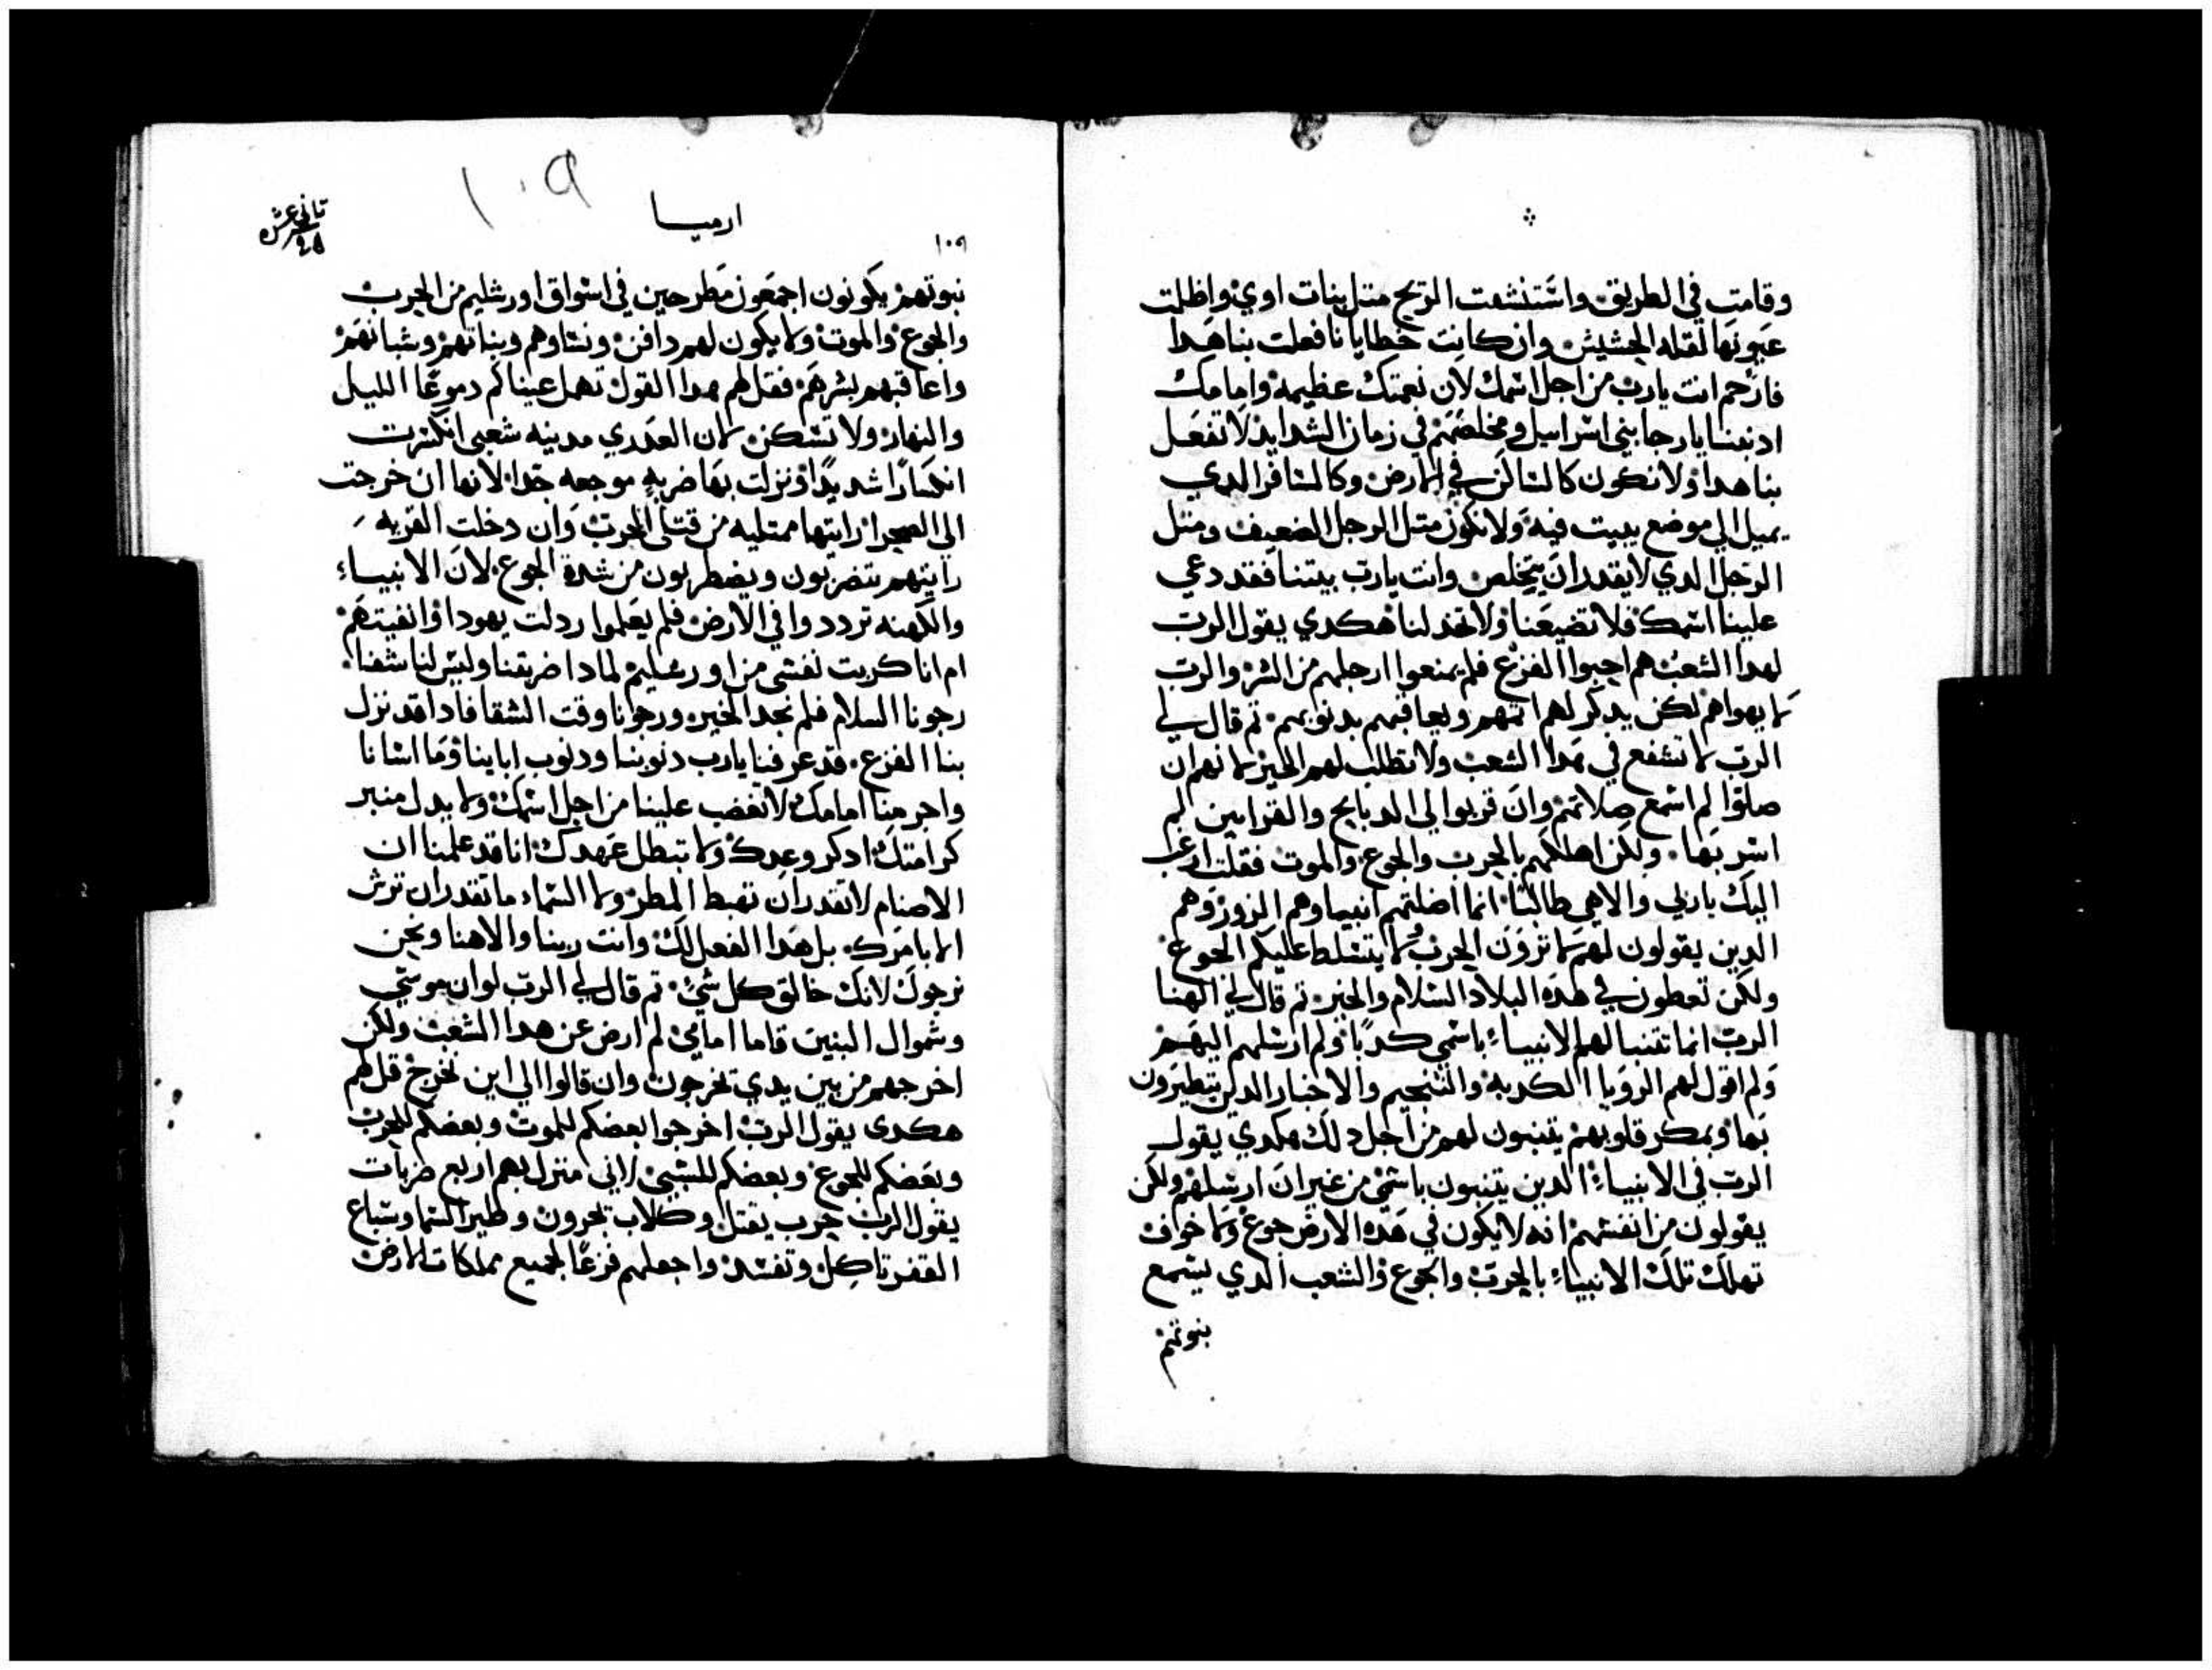 وقامت في الطريق واستنشقت الريح متل بنات اوي واظلمت
عيونها لقله الحشيش وان كانت خطايانا فعلت بنا هدا
فارحم انت يارب من اجل اسمك لان نعمتك عظيمه وامامك
ادنبنا يارجا بني اسراييل ومخلصهم في زمان الشدايد لا تفعل
بنا هدا ولا تكون كالساكن في الارض وكالمسافر الدي
يميل الي موضع يبيت فيه ولا تكون متل الرجل الضعيف ومتل
الرجل الدي لا يقدر ان يخلص وانت يارب بيتنا فقد دعي
علينا اسمك فلا تضيعنا ولا تخدلنا هكدي يقول الرب
لهدا الشعب هم احبوا الفزع فلم يمنعوا ارجلهم من الشر والرب
لا يهواهم لكن يدكر لهم اتمهم ويعاقبهم بدنوبهم تم قال لي
الرب لا تشفع في هدا الشعب ولا تطلب لهم الخير لانهم ان
صلوا لم اسمع صلاتهم وان قربوا لي الدبايح والقرابين لم
اسر بها ولكن اهلكهم بالحرب والجوع والموت فقلت ارغب
اليك ياربي والاهي طالبا انما اضلتهم انبياوهم الزور وهم
الدين يقولون لهم لا ترون الحرب ولا يتسلط عليكم الجوع
ولكن تعطون في هده البلاد السلام والخير تم قال لي الهنا
الرب انما تتنبا لهم الانبياء باسمي كدبا ولم ارسلهم اليهم
ولم اقول لهم الرويا الكدبه والتنجيم والاخبار الدين يتطيرون
بها وبمكر قلوبهم يتنبون لهم من اجل دلك هكدي يقول
الرب في الانبياء الدين يتنبون باسمي من غير ان ارسلهم ولكن
يقولون من انفسهم انه لا يكون في هده الارض جوع ولا خوف
تهلك تلك الانبياء بالحرب والجوع والشعب الدي يسمع
بنوتهم
ارميا
١٠٩
تاني عشر
١٠٩
نبوتهم يكونون اجمعون مطرحين في اسواق اورشليم من الحرب
والجوع والموت ولا يكون لهم دافن ونساوهم وبناتهم وشبانهم
واعاقبهم بشرهم فقل لهم هدا القول تهمل عيناكم دموعا الليل
والنهار ولا تسكن لان العدري مدينه شعبي انكسرت
انكسارا شديدا ونزلت بها ضربه موجعه جدا لانها ان خرجت
الي الصحرا رايتها ممتليه من قتلي الحرب وان دخلت القريه
رايتهم يتضربون ويضطربون من شدة الجوع لان الانبياء
والكهنه ترددوا في الارض فلم يعلموا ردلت يهودا وانفيتهم
ام انا كربت نفسي من اورشليم لمادا ضربتنا وليس لنا شفا
رجونا السلام فلم نجد الخير ورجونا وقت الشفا فادا قد نزل
بنا الفزع قد عرفنا يارب دنوبنا ودنوب ابايناوما اسانا
واجرمنا امامك لا تغضب علينا من اجل اسمك ولا يدل منبر
كرامتك ادكر وعدك ولا تبطل عهدك انا قد علمنا ان
الاصنام لا تقدر ان تهبط المطر ولا السماء ما تقدر ان ترش
الا بامرك بل هدا الفعل لك وانت ربنا والاهنا ونحن
نرجوك لانك خالق كل شي تم قال لي الرب لو ان موسي
وشموال النبيين قاما امامي لم ارض عن هدا الشعب ولكن
اخرجهم من بين يدي تخرجون وان قالوا الي اين نخرج قل لهم
هكدي يقول الرب اخرجوا بعضكم للموت وبعضكم للحرب
وبعضكم للجوع وبعضكم للسبي لاني منزل بهم اربع ضربات
يقول الرب حرب يقتل وكلاب تجرون وطير السما وسباع
القفر تاكل وتفسد واجعلهم فزعا لجميع مملكات الارض